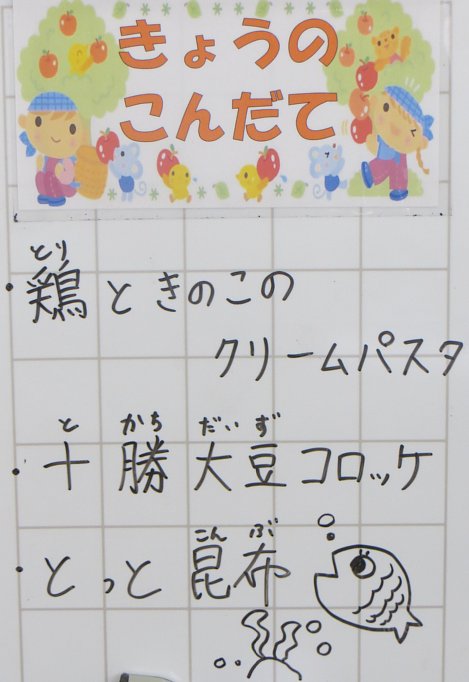 きょうの
こんだて
とり
・鶏ときのこの
クリームパスタ
と かち だい ず
・十勝大豆コロッケ
こん ぶ
・とっと昆布